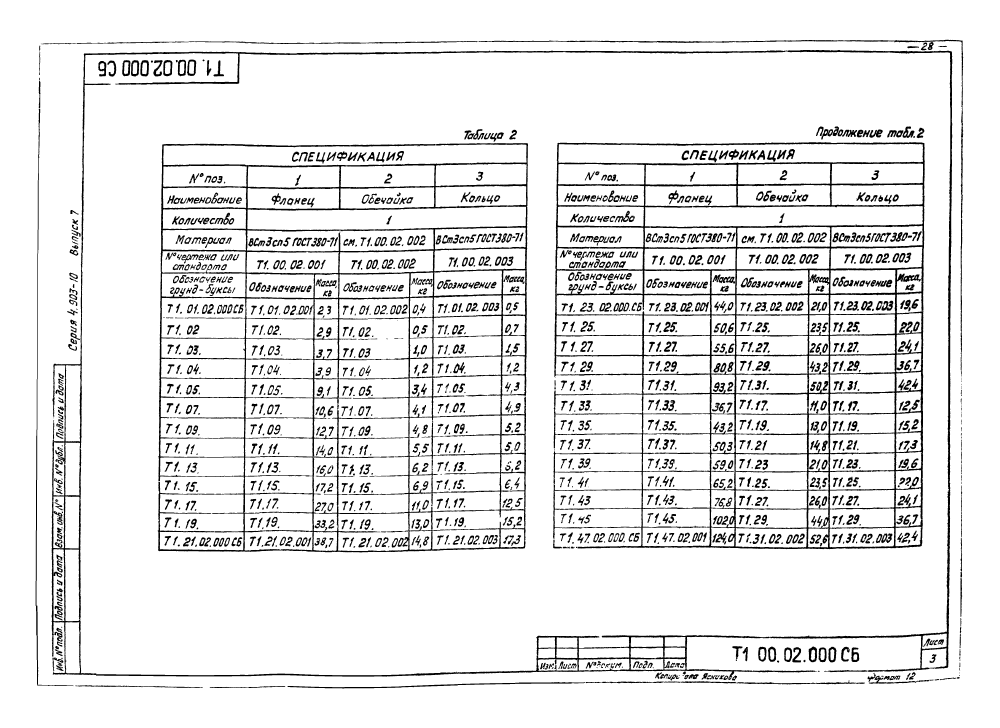 28
Т1.00.02.000 СБ
Серия 4.903-10 Выпуск 7
Таблица 2
СПЕЦИФИКАЦИЯ
N° поз. 1 2 3
Наименование Фланец Обечайка Кольцо
Количество 1
Материал ВСт3сп5 ГОСТ 380-71 см. Т1.00.02.002 ВСт3сп5 ГОСТ 380-71
N° чертежа или стандарта Т1.00.02.001 Т1.00.02.002 Т1.00.02.003
Обозначение грунд-буксы Обозначение Масса, кг Обозначение Масса, кг Обозначение Масса, кг
Т1.01.02.000СБ Т1.01.02.001 2,3 Т1.01.02.002 0,4 Т1.01.02.003 0,5
Т1.02 Т1.02. 2,9 Т1.02. 0,5 Т1.02. 0,7
Т1.03. Т1.03. 3,7 Т1.03 1,0 Т1.03. 1,5
Т1.04. Т1.04. 3,9 Т1.04 1,2 Т1.04. 1,2
Т1.05. Т1.05. 9,1 Т1.05. 3,4 Т1.05. 4,3
Т1.07. Т1.07. 10,6 Т1.07. 4,1 Т1.07. 4,9
Т1.09. Т1.09. 12,7 Т1.09. 4,8 Т1.09. 5,2
Т1.11. Т1.11. 14,0 Т1.11. 5,5 Т1.11. 5,0
Т1.13. Т1.13. 16,0 Т1.13. 6,2 Т1.13.
Т1.15. Т1.15. 17,2 Т1.15. 6,9 Т1.15. 6,4
Т1.17. Т1.17. 27,0 Т1.17. 11,0 Т1.17. 12,5
Т1.19. Т1.19. 33,2 Т1.19. 13,0 Т1.19. 15,2
Т1.21.02.000 СБ Т1.21.02.001 38,7 Т1.21.02.002 14,8 Т1.21.02.003 17,3
Продолжение табл. 2
СПЕЦИФИКАЦИЯ
N° поз. 1 2 3
Наименование Фланец Обечайка Кольцо
Количество 1
Материал ВСт3сп5 ГОСТ 380-71 см. Т1.00.02.002 ВСт3сп5 ГОСТ 380-71
N° чертежа или стандарта Т1.00.02.001 Т1.00.02.002 Т1.00.02.003
Обозначение грунд-буксы Обозначение Масса, кг Обозначение Масса, кг Обозначение Масса, кг
Т1.23.02.000.СБ Т1.23.02.001 44,0 Т1.23.02.002 21,0 Т1.23.02.003 19,6
Т1.25. Т1.25. 50,6 Т1.25. 23,5 Т1.25. 22,0
Т1.27. Т1.27. 55,6 Т1.27. 26,0 Т1.27. 24,1
Т1.29. Т1.29. 80,8 Т1.29. 43,2 Т1.29. 36,7
Т1.31. Т1.31. 93,2 Т1.31. 50,2 Т1.31. 42,4
Т1.33. Т1.33. 36,7 Т1.17. 11,0 Т1.17. 12,5
Т1.35. Т1.35. 43,2 Т1.19. 13,0 Т1.19. 15,2
Т1.37. Т1.37. 50,3 Т1.21 14,8 Т1.21. 17,3
Т1.39. Т1.39. 59,0 Т1.23 21,0 Т1.23. 19,6
Т1.41 Т1.41. 65,2 Т1.25. 23,5 Т1.25. 22,0
Т1.43 Т1.43. 76,8 Т1.27. 26,0 Т1.27. 24,1
Т1.45 Т1.45. 102,0 Т1.29. 44,0 Т1.29. 36,7
Т1.47.02.000.СБ Т1.47.02.001 124,0 Т1.31.02.002 52,6 Т1.31.02.003 42,4
Инв. N° подл. Подпись и дата Взам. инв. N° Инв. N° дубл. Подпись и дата
Изм. Лист N° докум. Подп. Дата
Т1 00.02.000 СБ
Лист
3
Формат 12